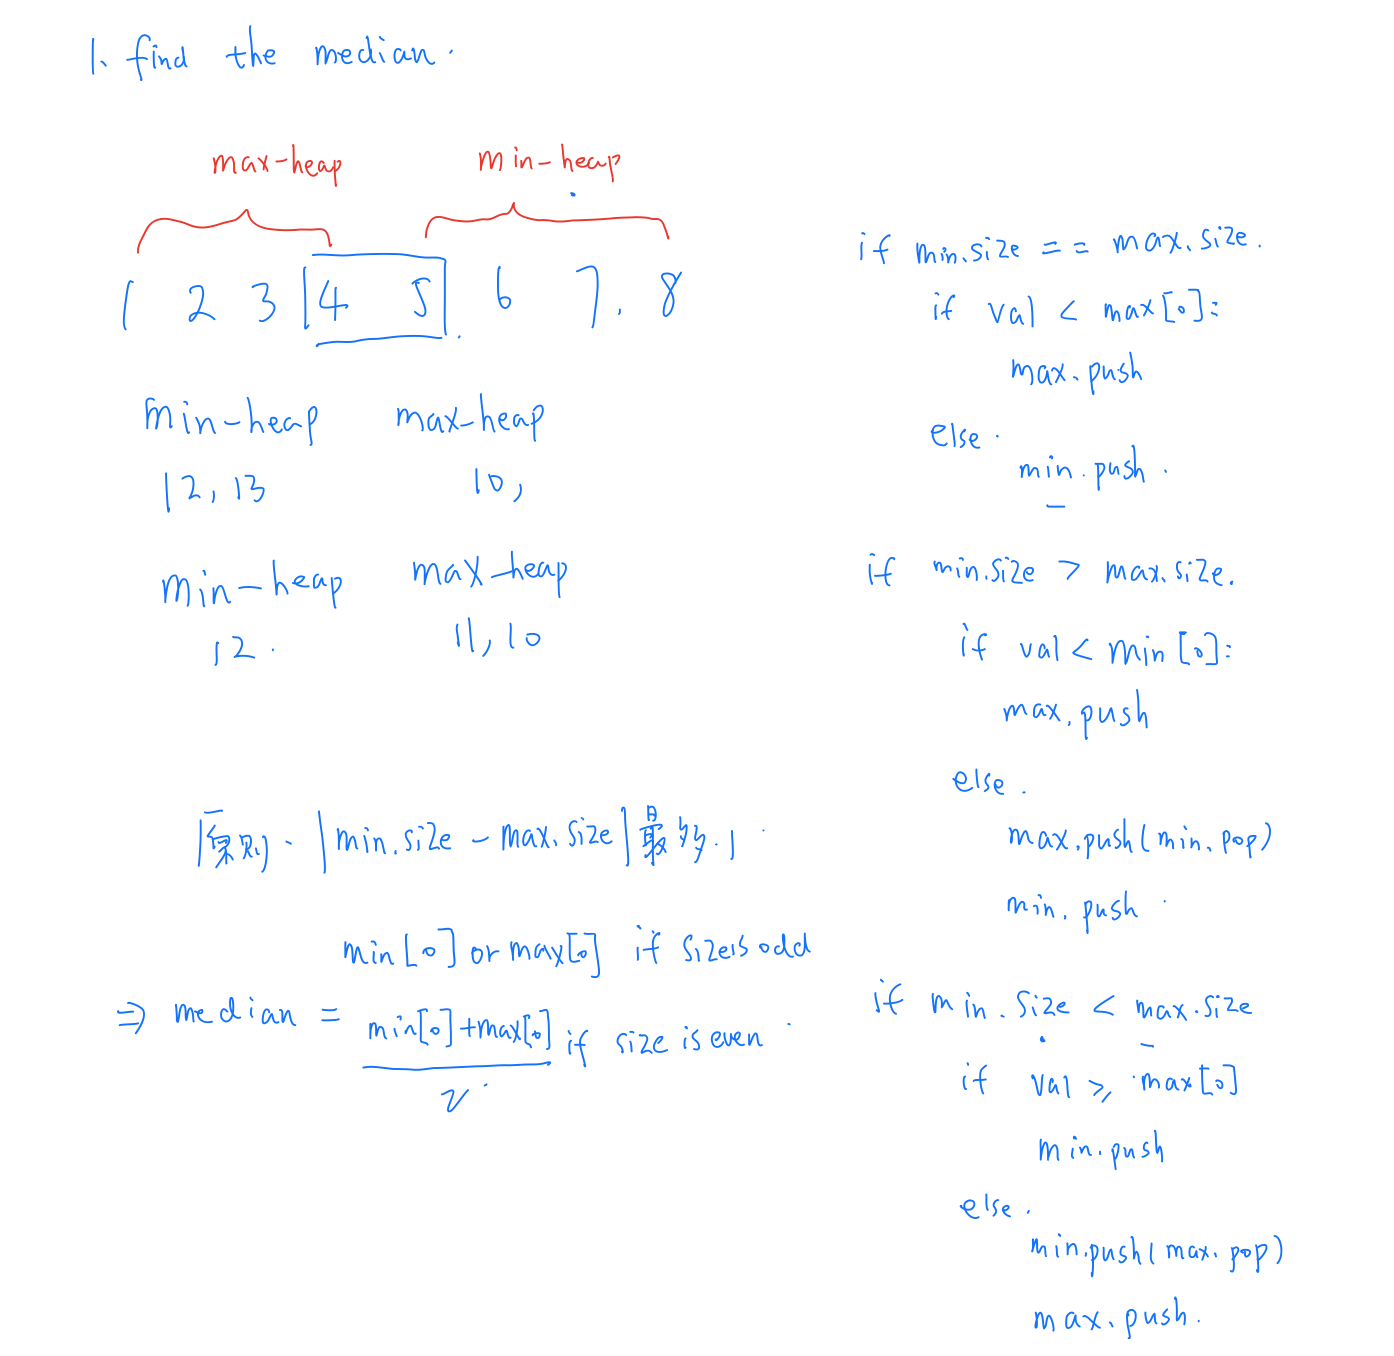 1、find the median.
max-heap min-heap
1 2 3 4 5. 6 7. 8
min-heap max-heap
12, 13 10,
min-heap max-heap
12. 11, 10
原则. |min.size - max.size| 最多.1
min[0] or max[0] if size is odd
⇒ median =
min[0]+max[0] if size is even
2
if min.size == max.size.
if val < max[0]:
max.push
else.
min.push.
if min.size > max.size.
if val < min[0]:
max.push
else.
max.push(min.pop)
min.push
if min.size < max.size
if val ⩾ max[0]
min.push
else.
min.push(max.pop)
max.push.